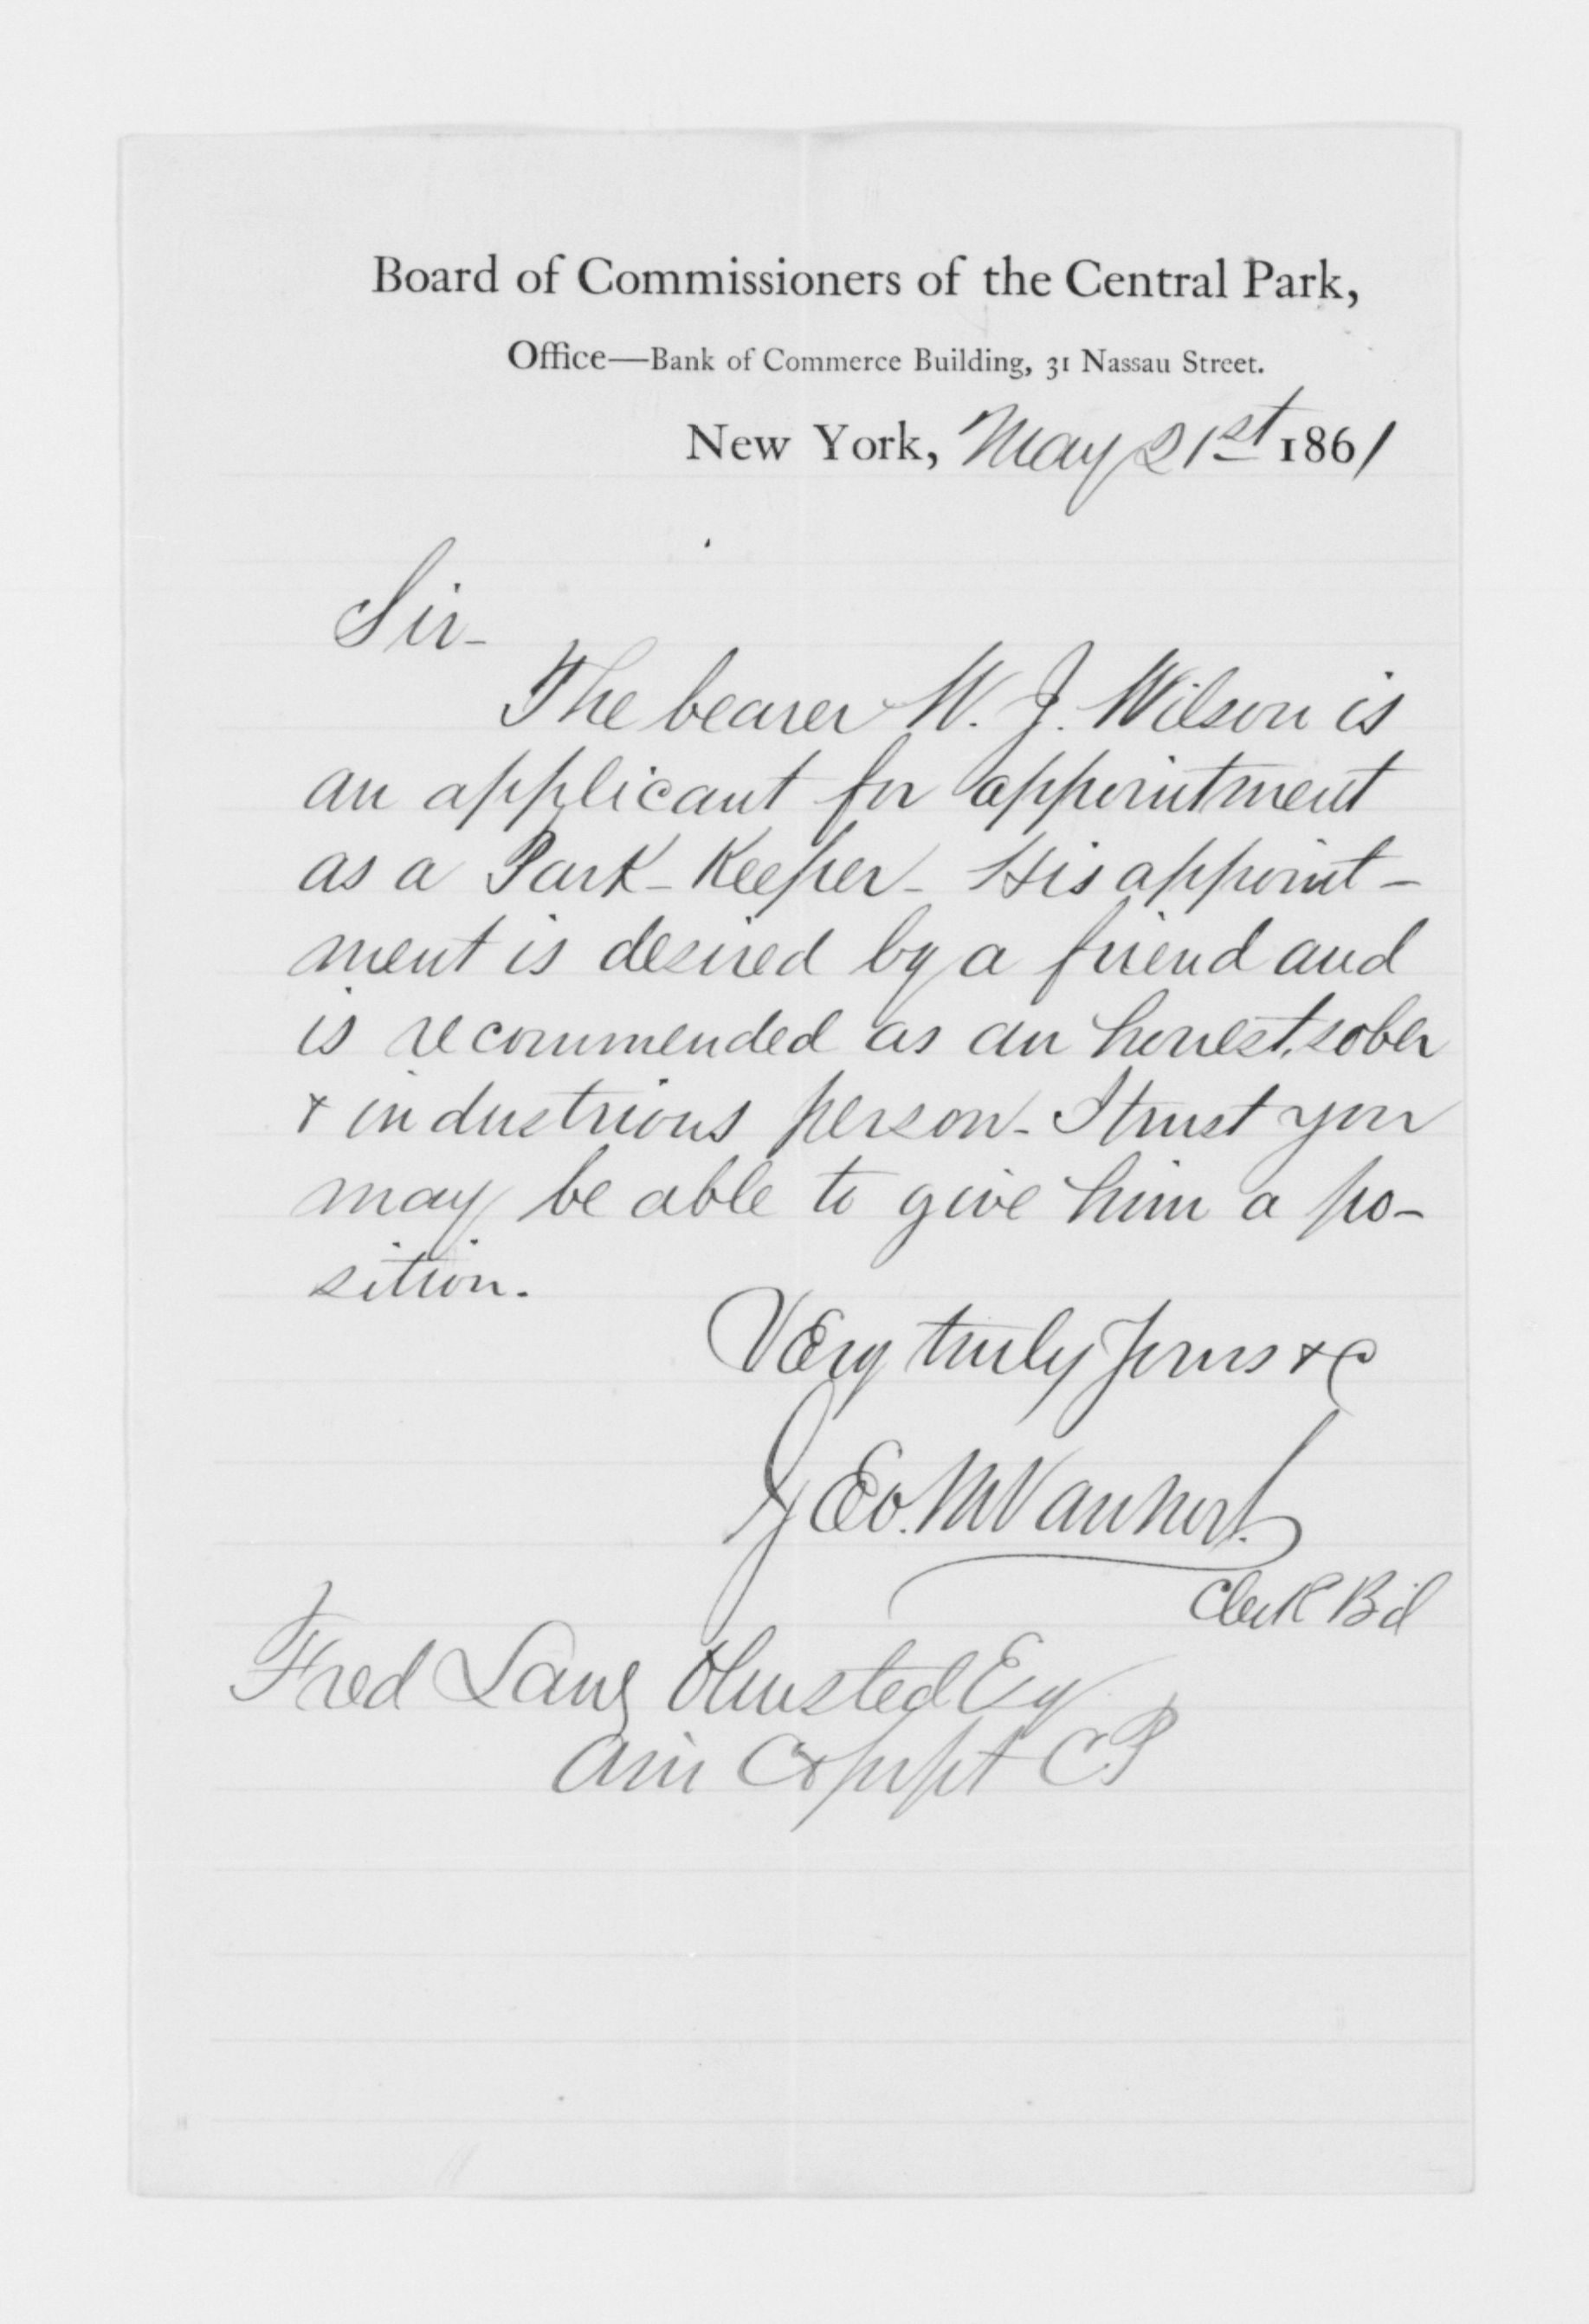 Board of Commissioners of the Central Park,
Office—Bank of Commerce Building, 31 Nassau Street.
New York, May 21st 1861
Sir-
The bearer W. J. Wilson is
an applicant for appointment
as a Park-Keeper- His appoint-
ment is desired by a friend and
is recommended as an honest, sober
& industrious person- I trust you
may be able to give him a po-
sition.
Very truly yours &c
Geo. M Van Nort.
Clerk Bd
Fred Law Olmsted Esq
C.P